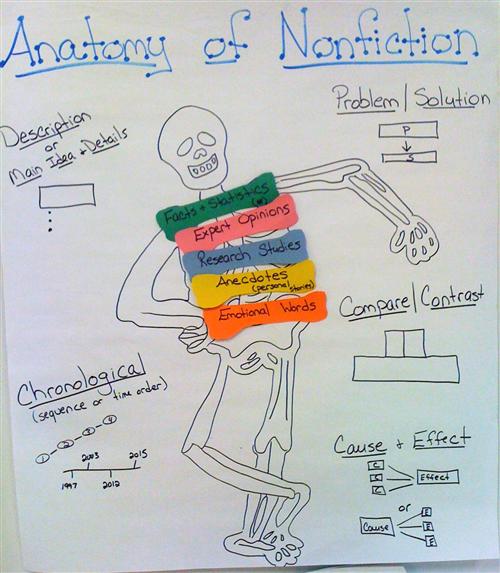 Anatomy of Nonfiction
Description
or
Main Idea + Details
Problem/Solution
P
S
Facts + Statistics
(#)
Expert Opinions
Research Studies
Anecdotes
(personal stories)
Emotional Words
Compare/Contrast
Chronological
(sequence or time order)
1 2 3 4
2003 2015
1997 2012
Cause + Effect
C
C
C
Effect
or
Cause
E
E
E